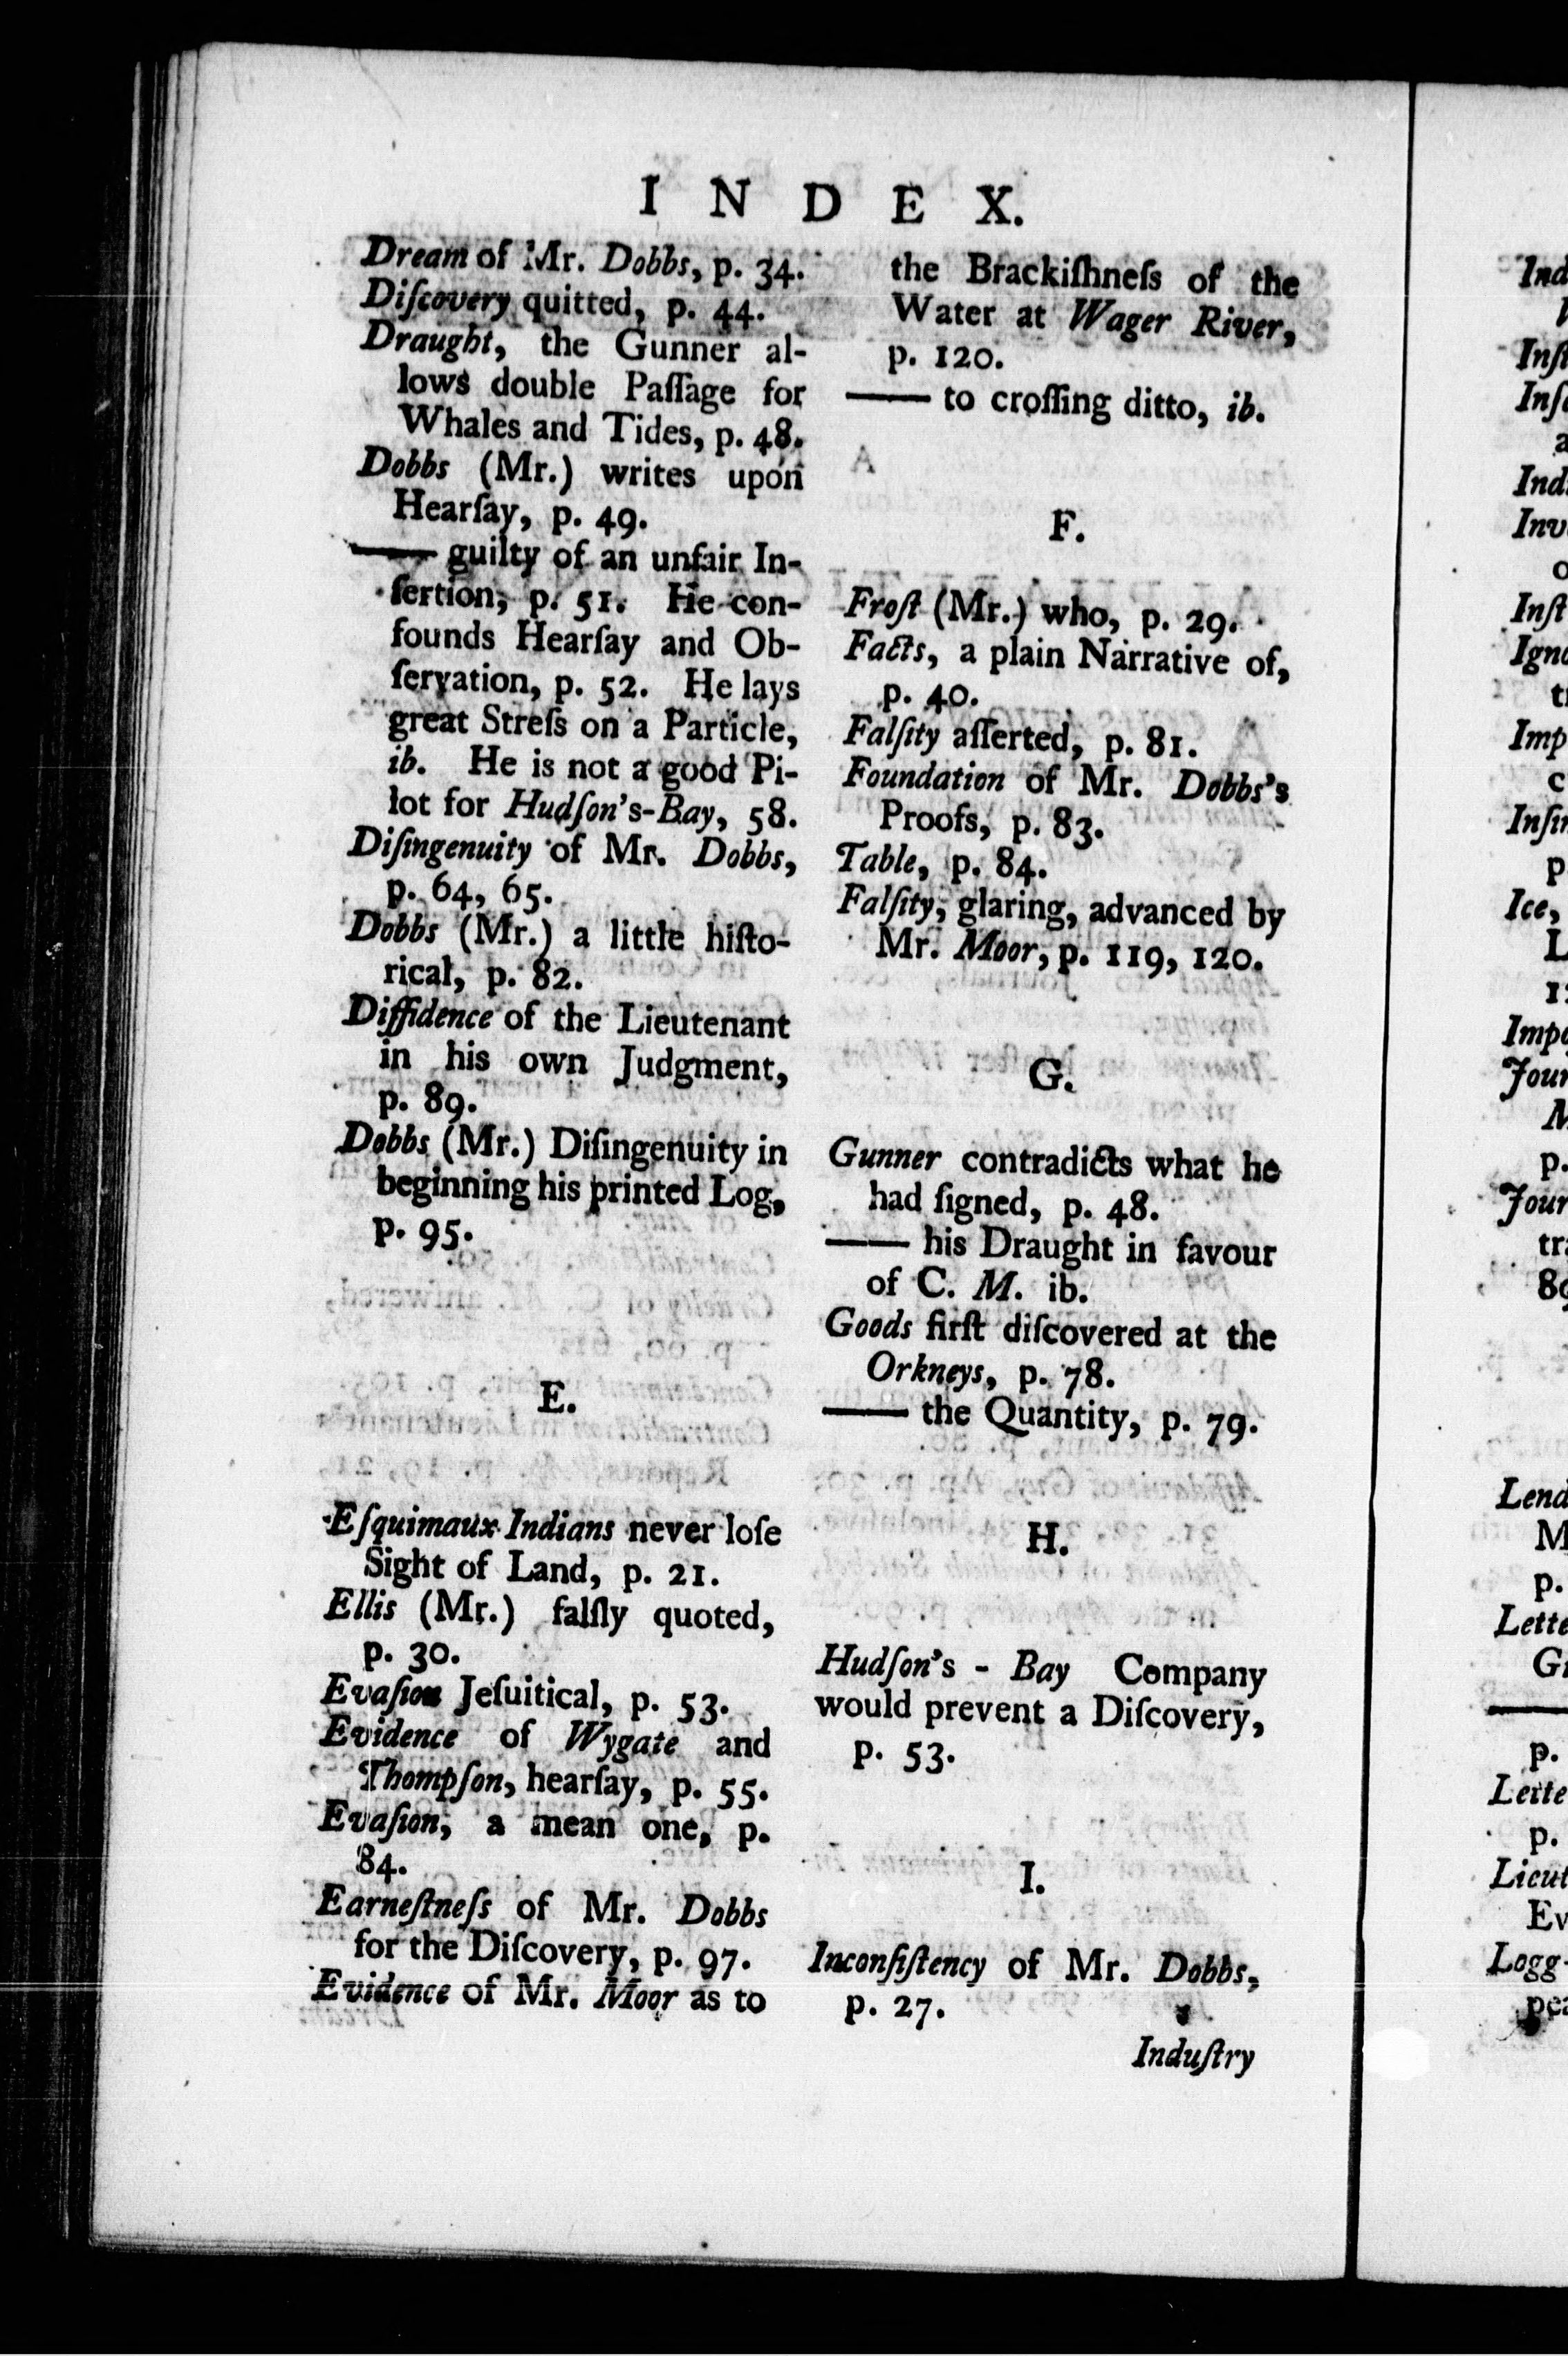 I N D E X.
Dream of Mr. Dobbs, p. 34.
Diſcovery quitted, p. 44.
Draught, the Gunner al-
lows double Paſſage for
Whales and Tides, p. 48.
Dobbs (Mr.) writes upon
Hearſay, p. 49.
—— guilty of an unfair In-
ſertion, p. 51. He con-
founds Hearſay and Ob-
ſervation, p. 52. He lays
great Streſs on a Particle,
ib. He is not a good Pi-
lot for Hudſon's-Bay, 58.
Diſingenuity of Mr. Dobbs,
p. 64, 65.
Dobbs (Mr.) a little hiſto-
rical, p. 82.
Diffidence of the Lieutenant
in his own Judgment,
p. 89.
Dobbs (Mr.) Diſingenuity in
beginning his printed Log,
p. 95.
E.
Eſquimaux Indians never loſe
Sight of Land, p. 21.
Ellis (Mr.) falſly quoted,
p. 30.
Evaſion Jeſuitical, p. 53.
Evidence of Wygate and
Thompſon, hearſay, p. 55.
Evaſion, a mean one, p.
84.
Earneſtneſs of Mr. Dobbs
for the Diſcovery, p. 97.
Evidence of Mr. Moor as to
the Brackiſhneſs of the
Water at Wager River,
p. 120.
—— to croſſing ditto, ib.
F.
Froſt (Mr.) who, p. 29.
Facts, a plain Narrative of,
p. 40.
Falſity aſſerted, p. 81.
Foundation of Mr. Dobbs's
Proofs, p. 83.
Table, p. 84.
Falſity, glaring, advanced by
Mr. Moor, p. 119, 120.
G.
Gunner contradicts what he
had ſigned, p. 48.
—— his Draught in favour
of C. M. ib.
Goods firſt diſcovered at the
Orkneys, p. 78.
—— the Quantity, p. 79.
H.
Hudſon's - Bay Company
would prevent a Diſcovery,
p. 53.
I.
Inconſiſtency of Mr. Dobbs,
p. 27.
Induſtry